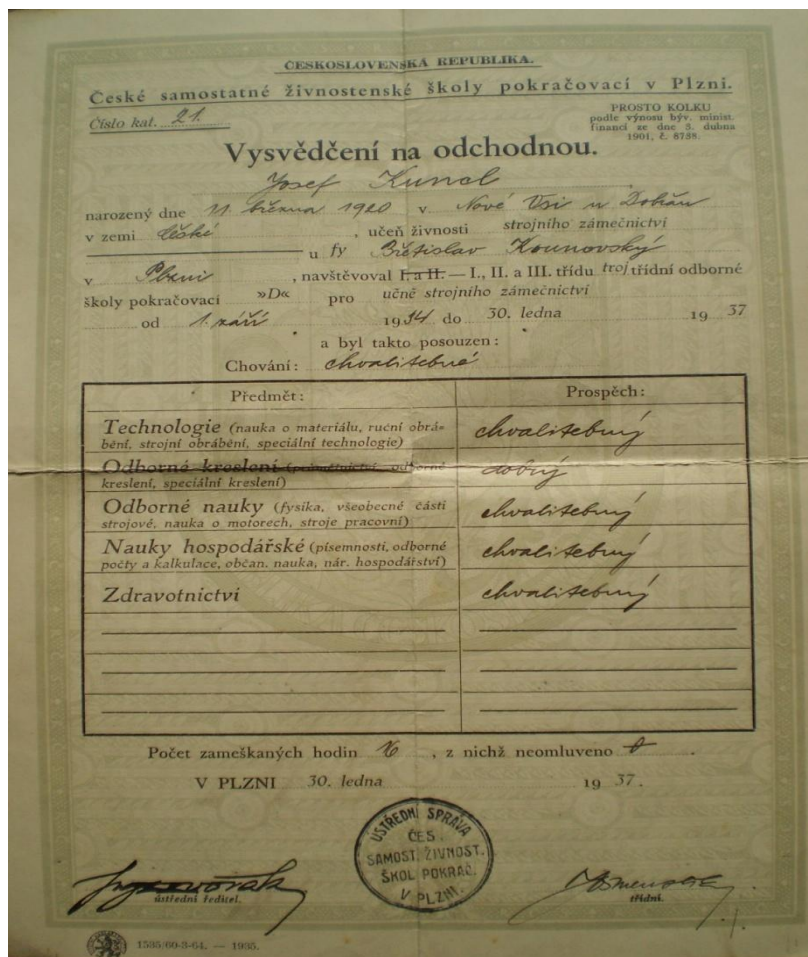 ČESKOSLOVENSKÁ REPUBLIKA.
České samostatné živnostenské školy pokračovací v Plzni.
Číslo kat. 21.
PROSTO KOLKU
podle výnosu býv. minist.
financí ze dne 5. dubna
1901, č. 8738.
Vysvědčení na odchodnou.
Josef Kuncl
narozený dne 11 března 1920 v Nové Vsi u Dobřan
v zemi České , učeň živnosti strojního zámečnictví
u fy Břetislav Kounovský
v Plzni , navštěvoval I. a II. — I., II. a III. třídu troj třídní odborné
školy pokračovací »D« pro učně strojního zámečnictví
od 1. září 1934 do 30. ledna 19 37
a byl takto posouzen:
Chování: chvalitebné
Předmět: Prospěch:
Technologie (nauka o materiálu, ruční obrá-
bění, strojní obrábění, speciální technologie) chvalitebný
Odborné kreslení odborné
kreslení, speciální kreslení) dobrý
Odborné nauky (fysika, všeobecné části
strojové, nauka o motorech, stroje pracovní) chvalitebný
Nauky hospodářské (písemnosti, odborné
počty a kalkulace, občan. nauka, nár. hospodářství) chvalitebný
Zdravotnictví chvalitebný
Počet zameškaných hodin , z nichž neomluveno
V PLZNI 30. ledna 19 37.
ÚSTŘEDNÍ SPRÁVA
ČES.
SAMOST. ŽIVNOST.
ŠKOL POKRAČ.
V PLZNI.
ústřední ředitel.
třídní.
1535/60-3-64. — 1935.